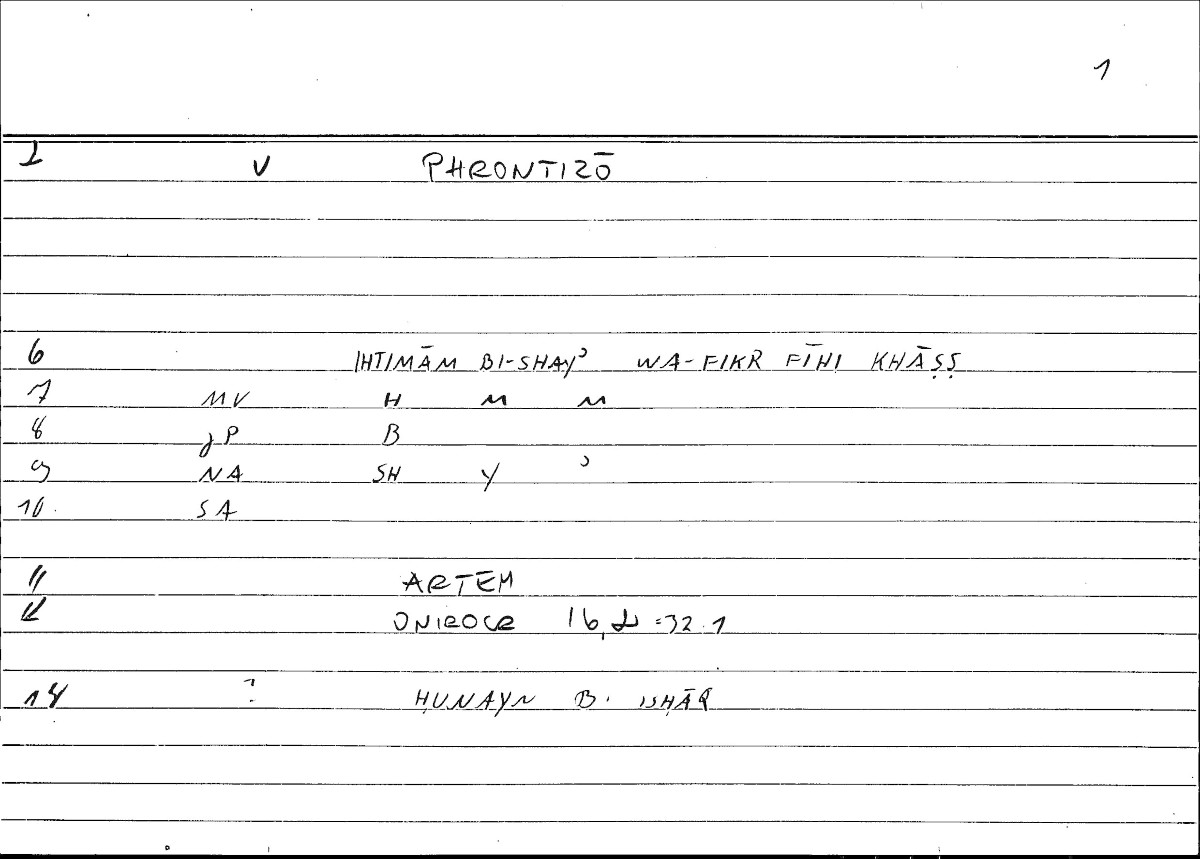 1
1 V PHRONTIZŌ
6 IHTIMĀM BI-SHAYʾ WA-FIKR FĪHI KHĀṢṢ
7 MV H M M
8 JP B
9 NA SH Y ʾ
10. SA
11 ARTEM
12 ONIROCR 16, =32.1
14 ? ḤUNAYN B. ISḤĀQ